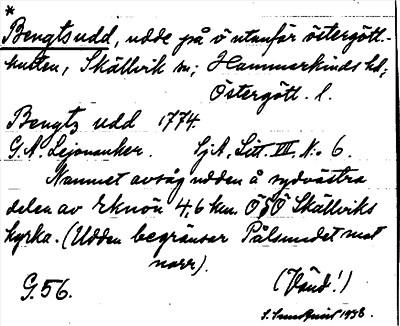 *
Bengtsudd, udde på ö utanför östergött-
kusten, Skällvik sn; Hammarkinds hd;
Östergötl. l.
Bengtz udd 1774.
G. A. Lejonanker. SjA, Litt. III, No 6.
Namnet avsåg udden å sydvästra
delen av Eknön 4,6 km. ÖSÖ Skällviks
kyrka. (Udden begränsar Pålsundet mot
norr).
G. 56. (Vänd!)
1938